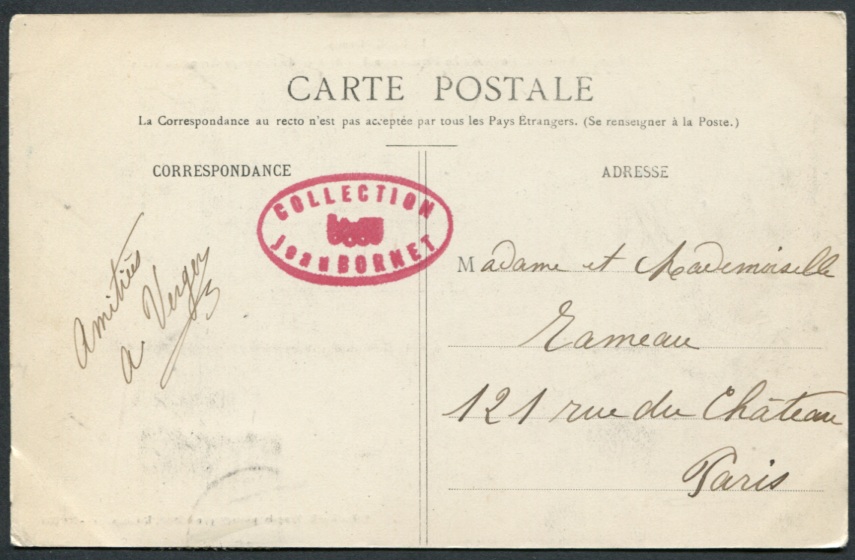 CARTE POSTALE
La Correspondance au recto n'est pas acceptée par tous les Pays Étrangers. (Se renseigner à la Poste.)
CORRESPONDANCE
COLLECTION
Jean BORNET
Amitiés
A Verger
ADRESSE
Madame et Mademoiselle
Rameau
121 rue du Château
Paris